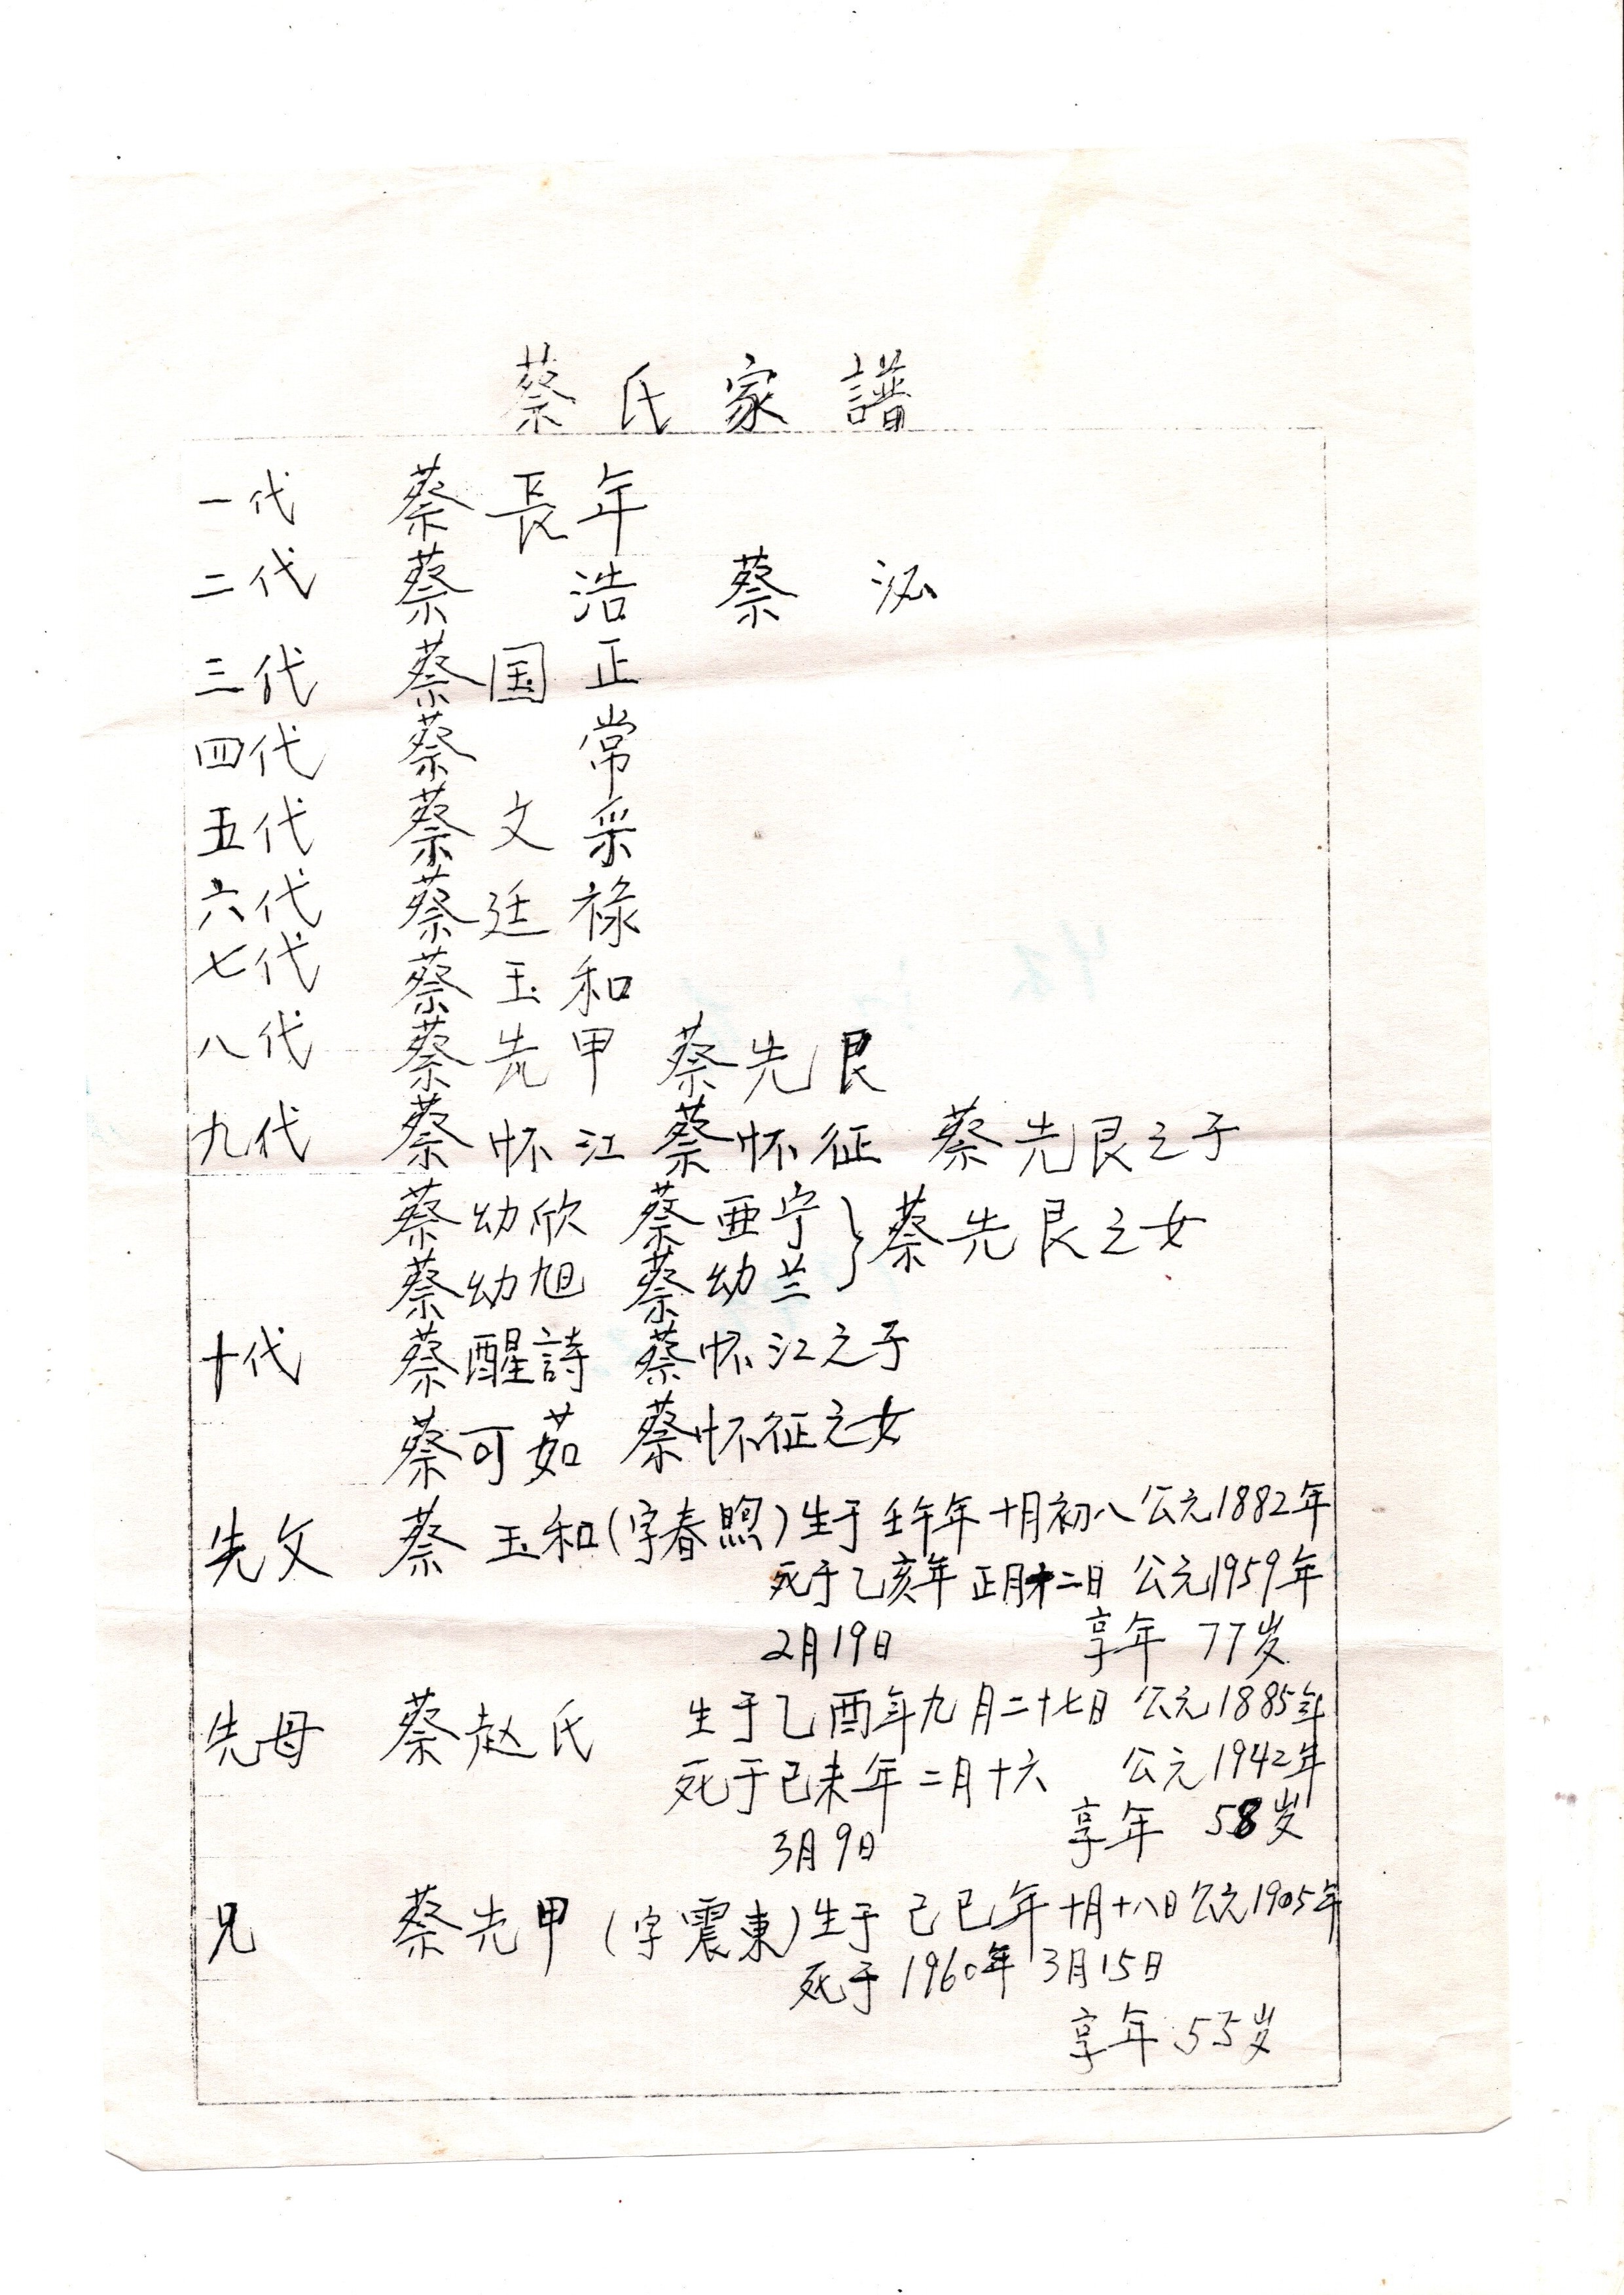 蔡氏家譜
一代 蔡長年
二代 蔡 浩 蔡 泓
三代 蔡国正
四代 蔡 常
五代 蔡文采
六代 蔡廷禄
七代 蔡玉和
八代 蔡先甲 蔡先艮
九代 蔡怀江 蔡怀征 蔡先艮之子
蔡幼欣 蔡亜宁 } 蔡先艮之女
蔡幼旭 蔡幼兰
十代 蔡醒詩 蔡怀江之子
蔡可茹 蔡怀征之女
先父 蔡玉和(字春煦)生于壬午年十月初八公元1882年
死于乙亥年正月十二日 公元1959年
2月19日 享年 77岁
先母 蔡赵氏 生于乙酉年九月二十七日 公元1885年
死于己未年二月十六 公元1942年
3月9日 享年 58岁
兄 蔡先甲(字震東)生于己巳年十月十八日公元1905年
死于1960年3月15日
享年55岁